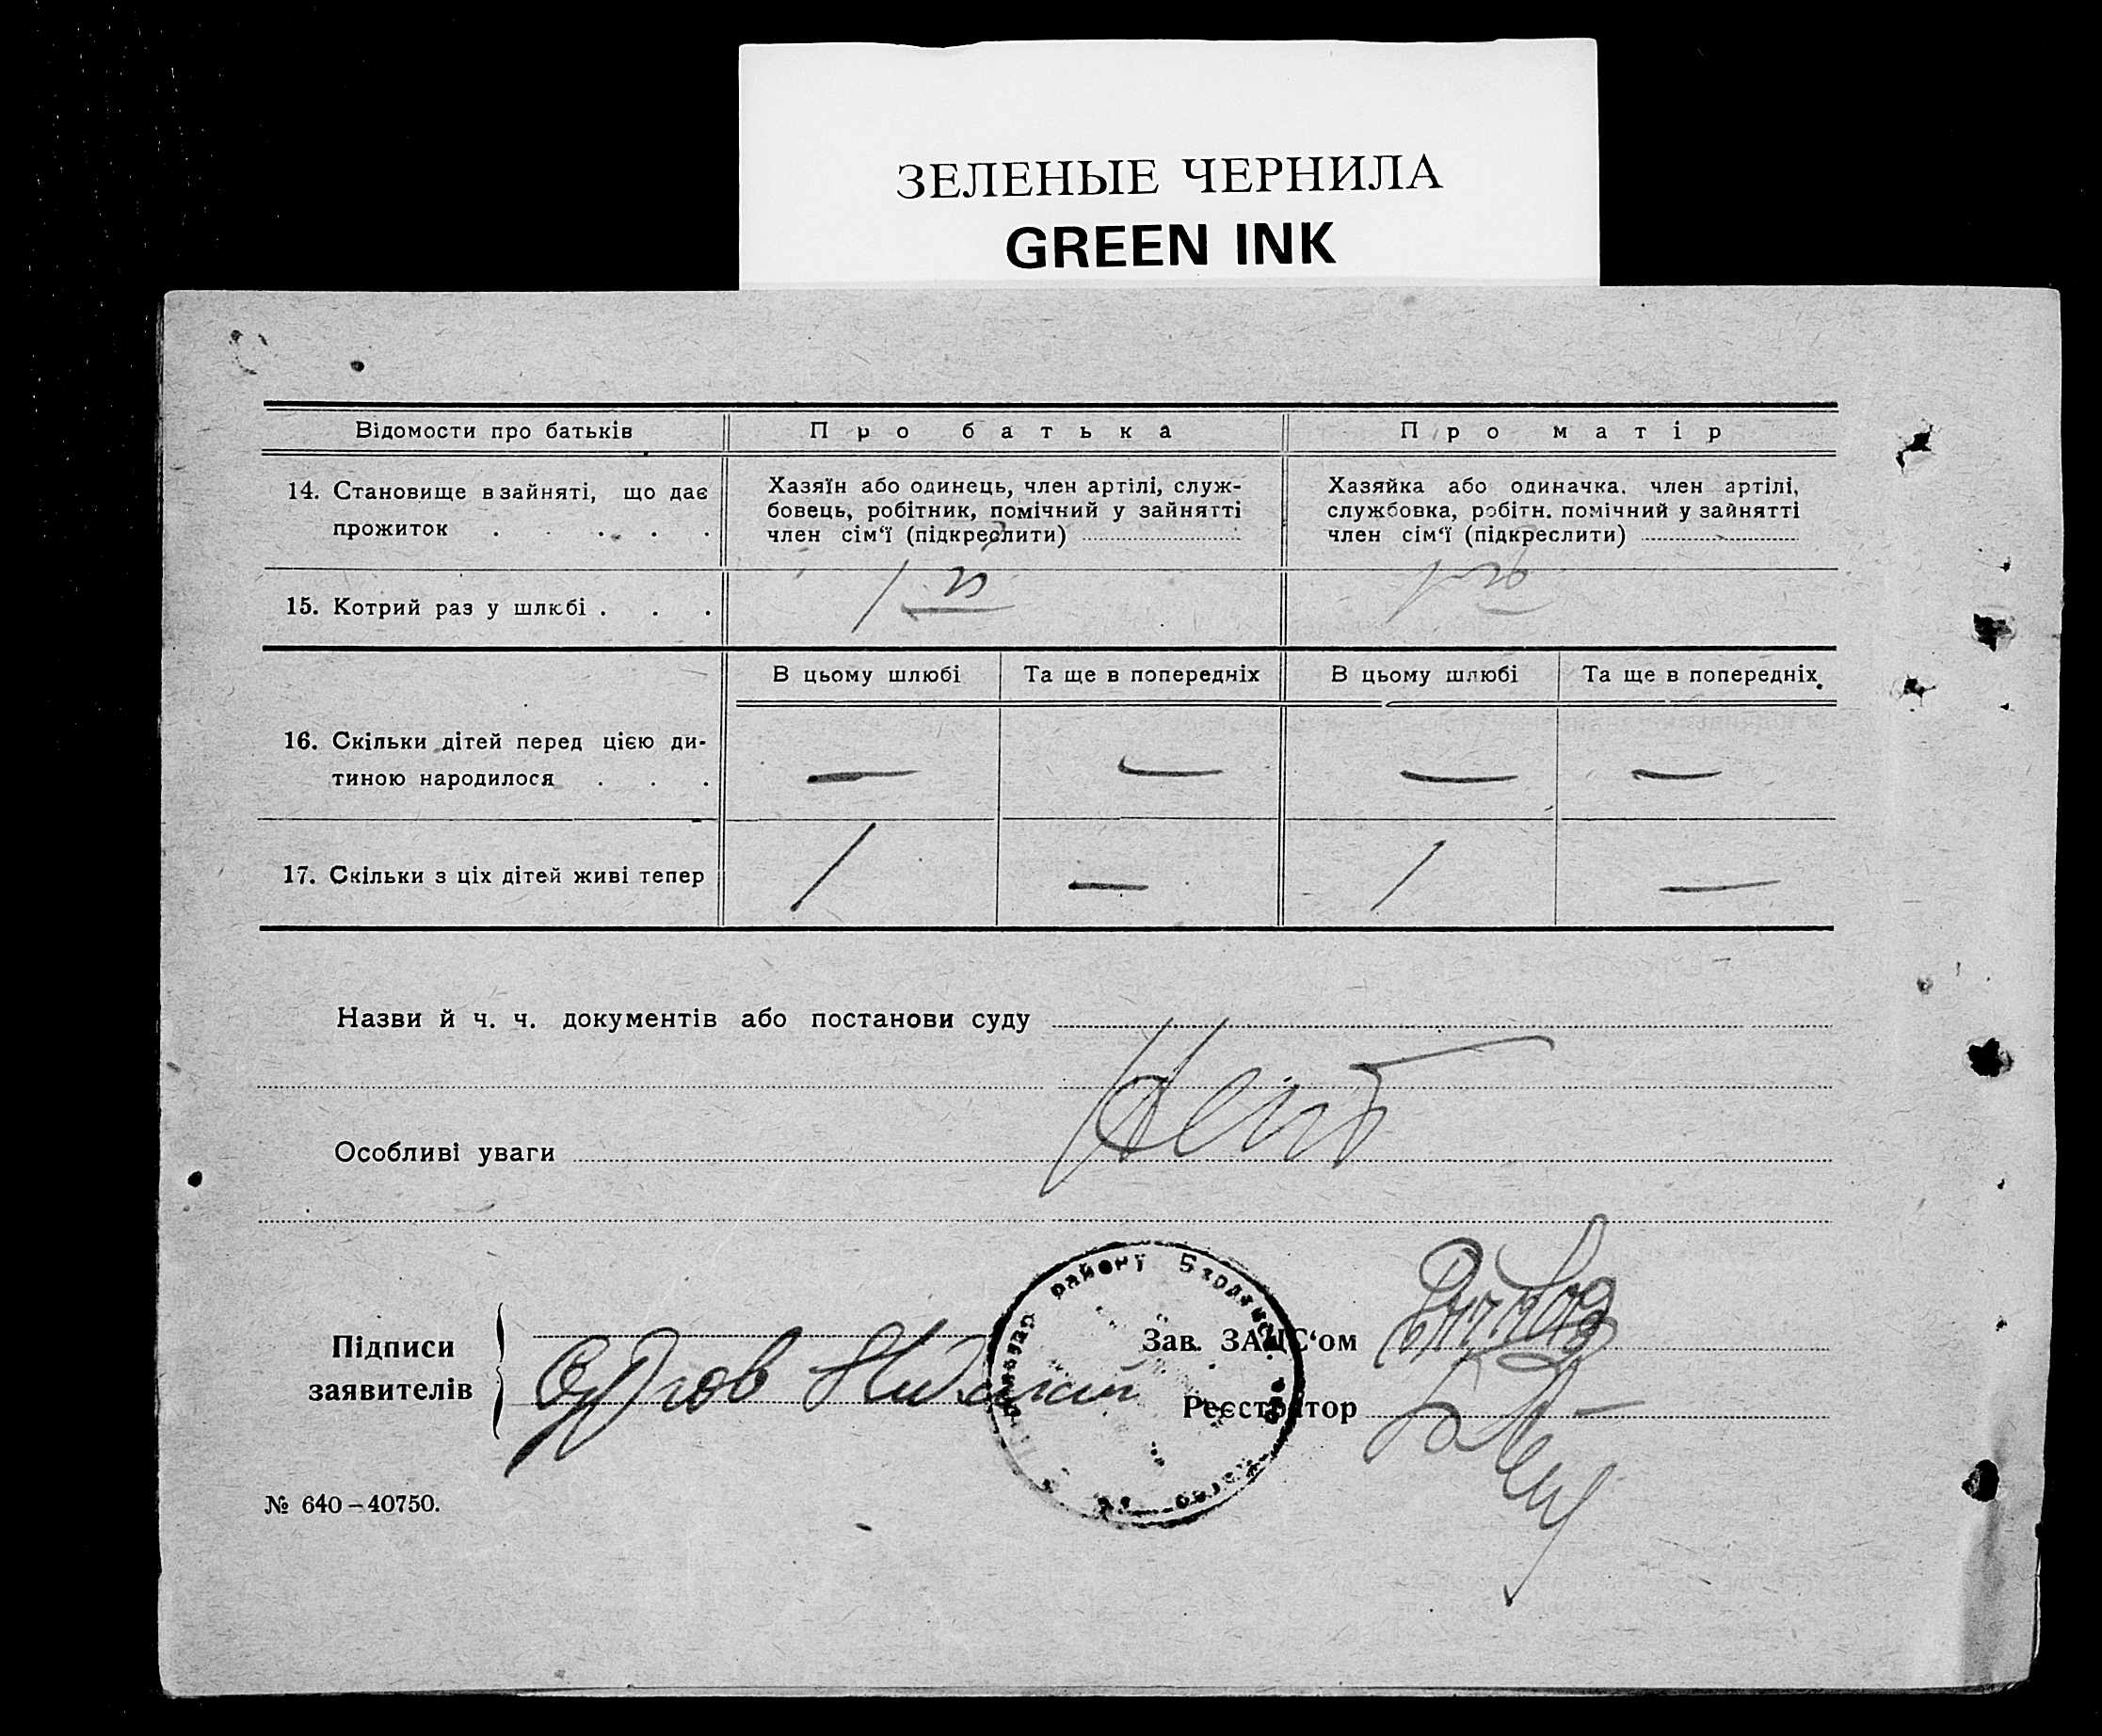 ЗЕЛЕНЫЕ ЧЕРНИЛА
GREEN INK
Відомости про батьків
Про батька
Про матір
14. Становище в зайняті, що дає
прожиток . . . . .
Хазяїн або одинець, член артілі, служ-
бовець, робітник, помічний у зайнятті
член сім‘ї (підкреслити)
Хазяйка або одиначка, член артілі,
службовка, робітн. помічний у зайнятті
член сім‘ї (підкреслити)
15. Котрий раз у шлюбі . . .
1
1
В цьому шлюбі
Та ще в попередніх
В цьому шлюбі
Та ще в попередніх
16. Скільки дітей перед цією ди-
тиною народилося . . .
—
—
—
—
17. Скільки з ціх дітей живі тепер
1
—
1
—
Назви й ч. ч. документів або постанови суду
Особливі уваги
Підписи
заявителів
Зав. ЗАЦС‘ом
Реєстратор
району
№ 640–40750.